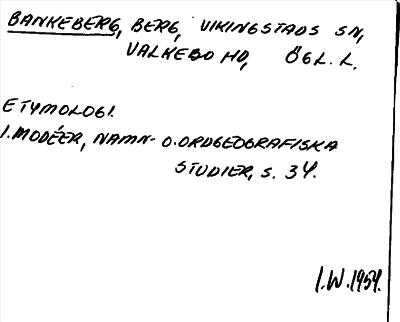 BANKEBERG, BERG, VIKINGSTADS SN,
VALKEBO HD, ÖGL. L.
ETYMOLOGI.
I. MODÉER, NAMN- O. ORDGEOGRAFISKA
STUDIER, S. 34.
I.W. 1954.